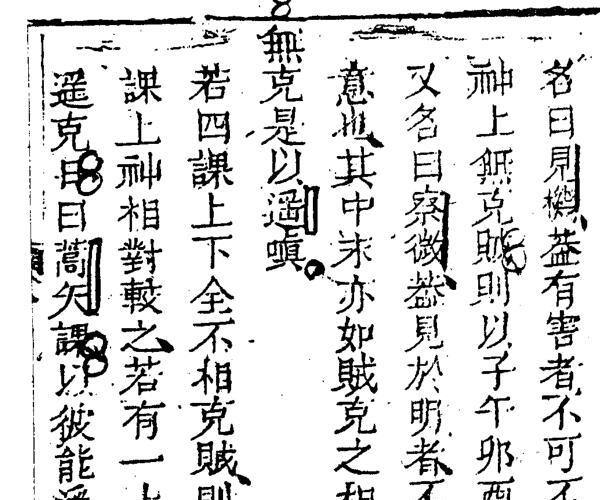 名曰見機葢有害者不可不
神上無克賊則以子午卯酉
又名曰察微葢見於明者不
意也其中末亦如賊克之相
無克是以遥嗔
若四課上下全不相克賊則
課上神相對較之若有一上
遥克日曰蒿矢課以彼能遥